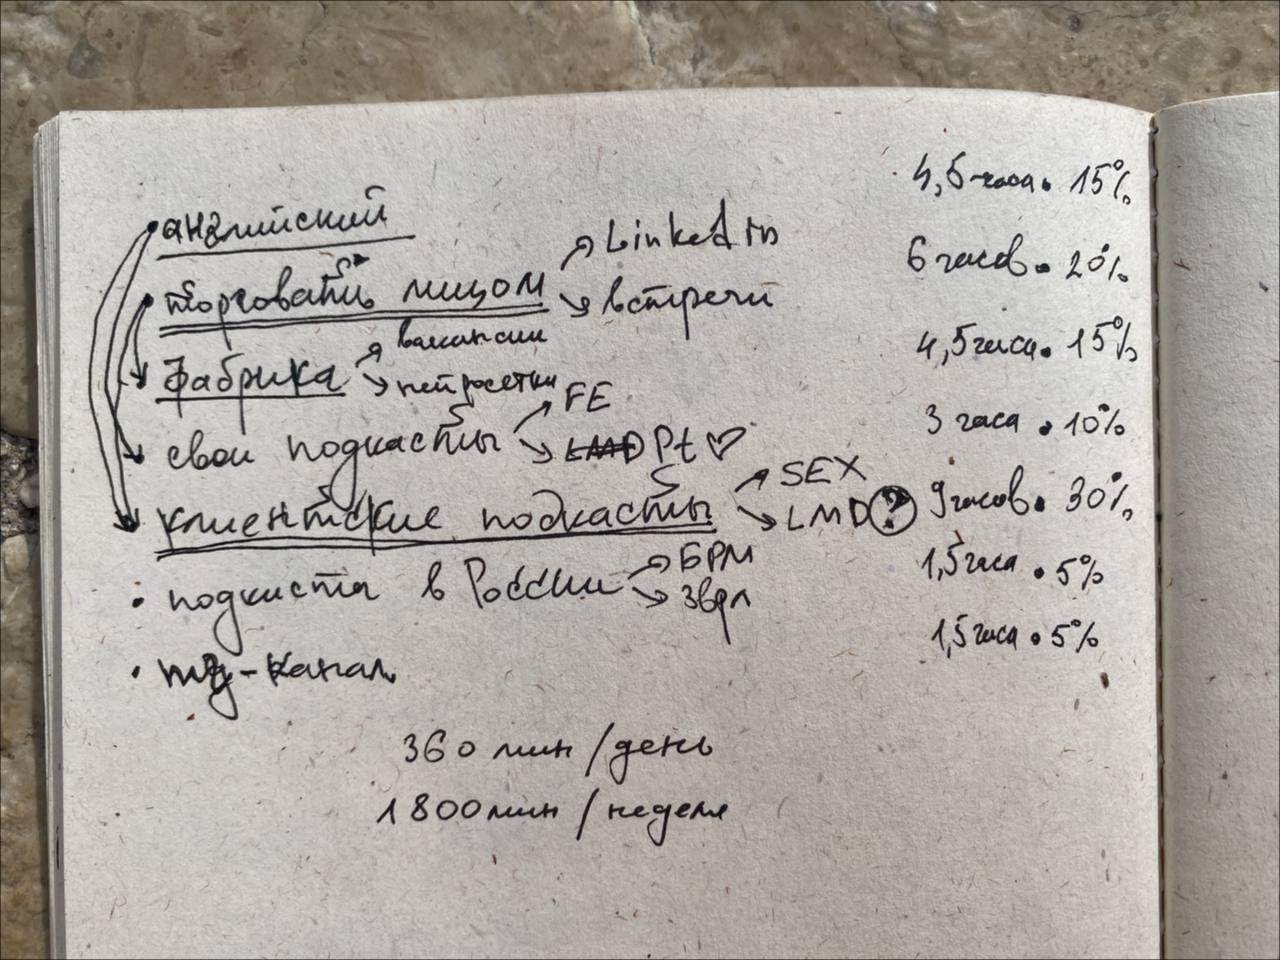 английский 4,5 часа • 15%
торговать лицом → LinkedIn → встречи 6 часов • 20%
фабрика → вакансии → нейросетки 4,5 часа • 15%
свои подкасты → FE → LMD Pt ♡ 3 часа • 10%
клиентские подкасты → SEX → LMD ? 9 часов • 30%
• подкаста в России → БРМ → Звдл 1,5 часа • 5%
• тг-канал 1,5 часа • 5%
360 мин/день
1800 мин/неделя